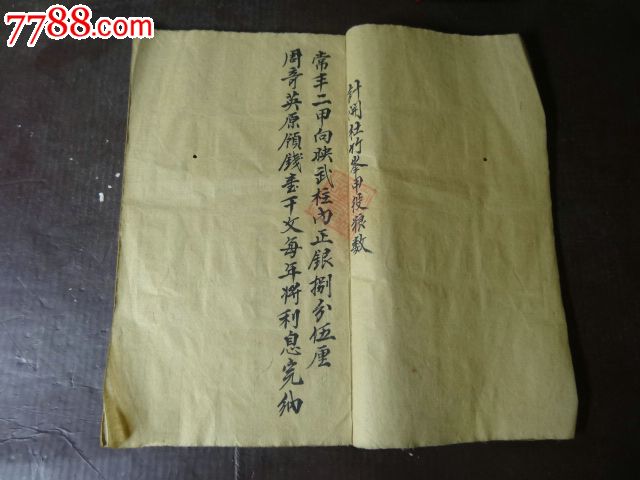 7788.com
計開杜竹峯甲役粮数
常丰二甲向映武柱内正銀捌分伍厘
周奇英原領錢壹千文每年將利息完納